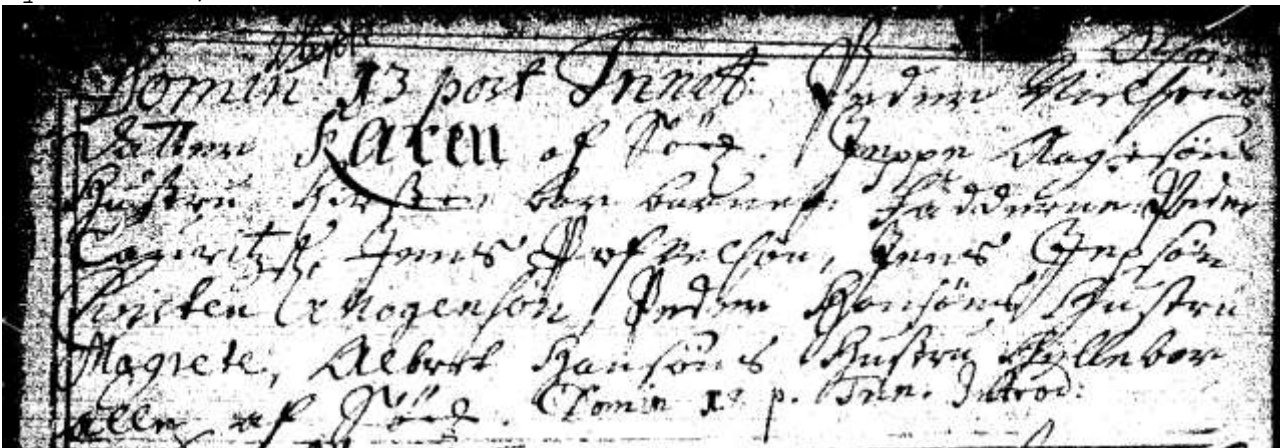 Domin 13 post Trinit: Peder Nielsøns
Datter Karen af Sørd. Jeppe Aagesøns
Hustru Kirsten bar barnet. Fadderne: Peder
Lauritzß, Jens Poffvelsøn, Jens Jepsøn
Kirsten Mogensøn, Peder Hansøns Hustru
Magrete, Albret Hansøns Hustru Hyllebor
alle af Sørd. Domin p. Trin. Introd: